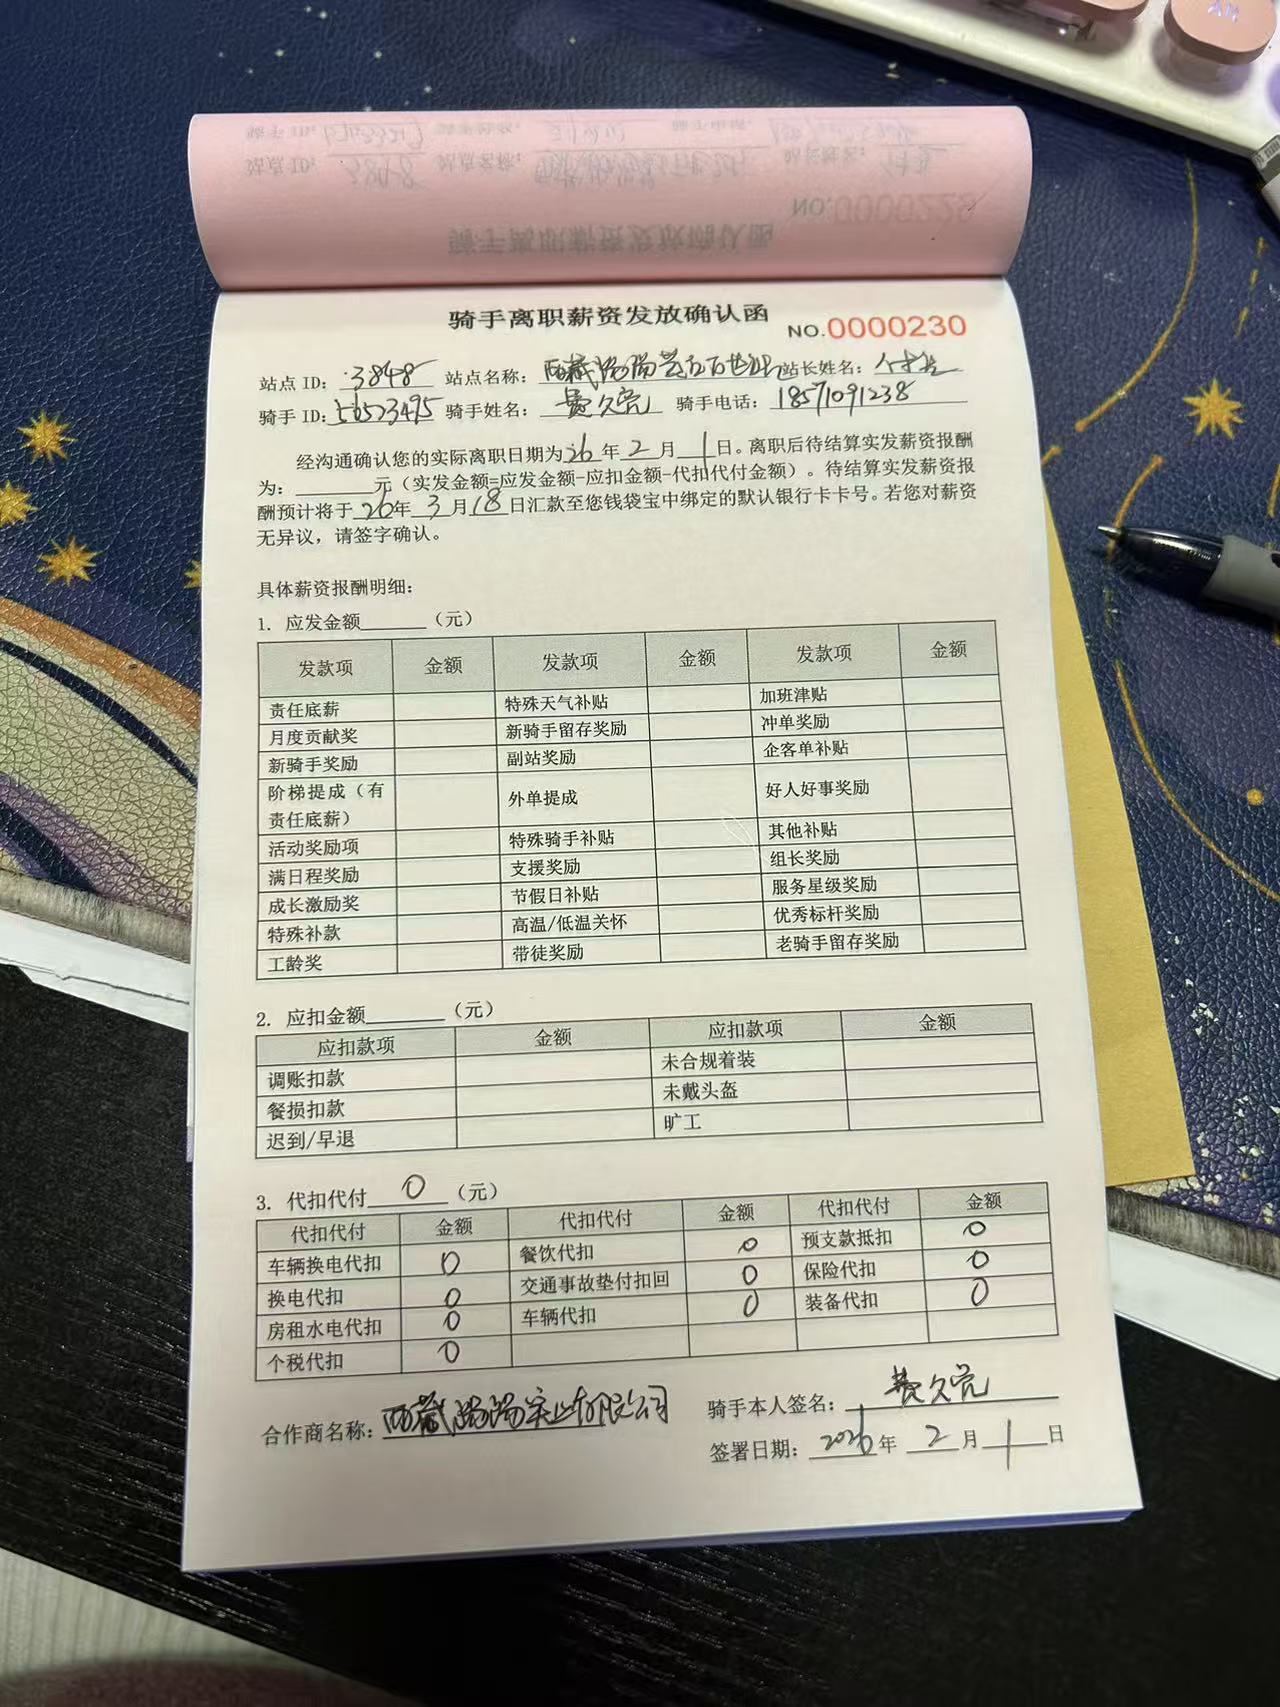 骑手离职薪资发放确认函
NO.0000230
站点 ID: 3848 站点名称: 西藏 站长姓名:
骑手 ID: 56523495 骑手姓名: 费久亮 骑手电话: 18571091238
经沟通确认您的实际离职日期为26年2月1日。离职后待结算实发薪资报酬
为: ______元（实发金额=应发金额-应扣金额-代扣代付金额）。待结算实发薪资报
酬预计将于26年3月18日汇款至您钱袋宝中绑定的默认银行卡卡号。若您对薪资
无异议，请签字确认。
具体薪资报酬明细:
1. 应发金额______（元）
发款项 金额 发款项 金额 发款项 金额
责任底薪 特殊天气补贴 加班津贴
月度贡献奖 新骑手留存奖励 冲单奖励
新骑手奖励 副站奖励 企客单补贴
阶梯提成（有责任底薪） 外单提成 好人好事奖励
活动奖励项 特殊骑手补贴 其他补贴
满日程奖励 支援奖励 组长奖励
成长激励奖 节假日补贴 服务星级奖励
特殊补款 高温/低温关怀 优秀标杆奖励
工龄奖 带徒奖励 老骑手留存奖励
2. 应扣金额______（元）
应扣款项 金额 应扣款项 金额
调账扣款 未合规着装
餐损扣款 未戴头盔
迟到/早退 旷工
3. 代扣代付 0 （元）
代扣代付 金额 代扣代付 金额 代扣代付 金额
车辆换电代扣 0 餐饮代扣 0 预支款抵扣 0
换电代扣 0 交通事故垫付扣回 0 保险代扣 0
房租水电代扣 0 车辆代扣 0 装备代扣 0
个税代扣 0
合作商名称: 西藏 实业有限公司 骑手本人签名: 费久亮
签署日期: 2026年 2月 1日